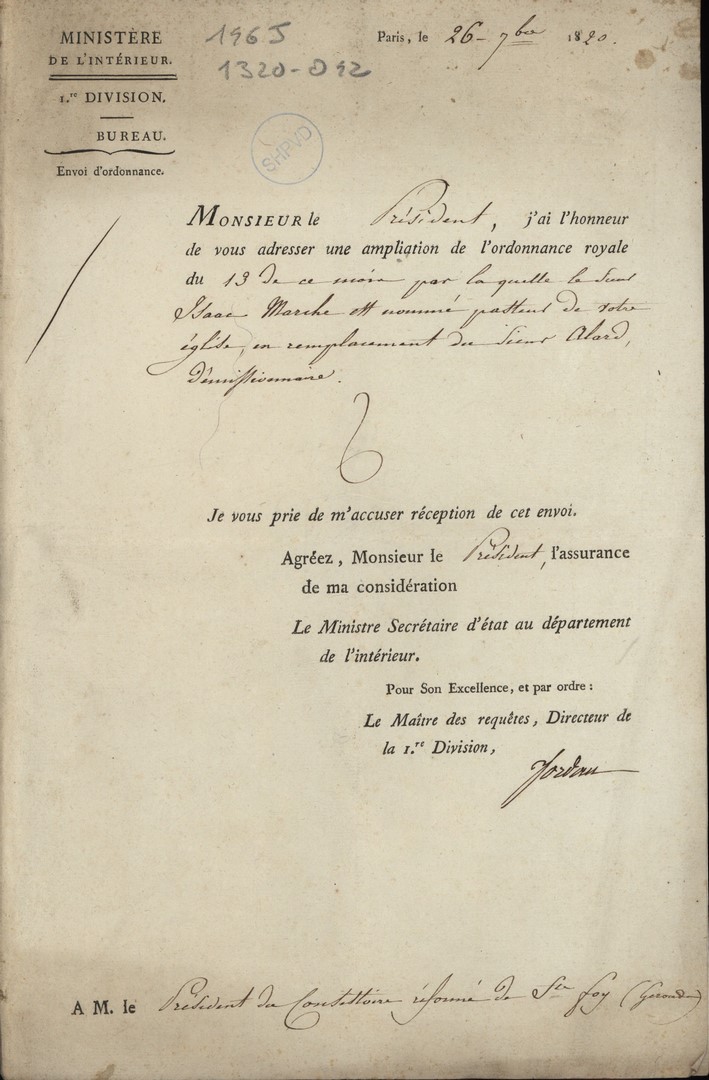 MINISTÈRE
DE L'INTÉRIEUR.
1.re DIVISION.
BUREAU.
Envoi d'ordonnance.
1965
1320-D92
SHPVD
Paris, le 26 - 7bre 1820.
MONSIEUR le Président, j'ai l'honneur
de vous adresser une ampliation de l'ordonnance royale
du 13 de ce mois par la quelle le Sieur
Isaac Marche est nommé pasteur de votre
église, en remplacement du Sieur Alard,
Démissionnaire.
Je vous prie de m'accuser réception de cet envoi.
Agréez, Monsieur le Président, l'assurance
de ma considération
Le Ministre Secrétaire d'état au département
de l'intérieur.
Pour Son Excellence, et par ordre :
Le Maître des requêtes, Directeur de
la 1.re Division,
Jordan
A M. le Président du Consistoire réformé de Ste foy (Gironde)